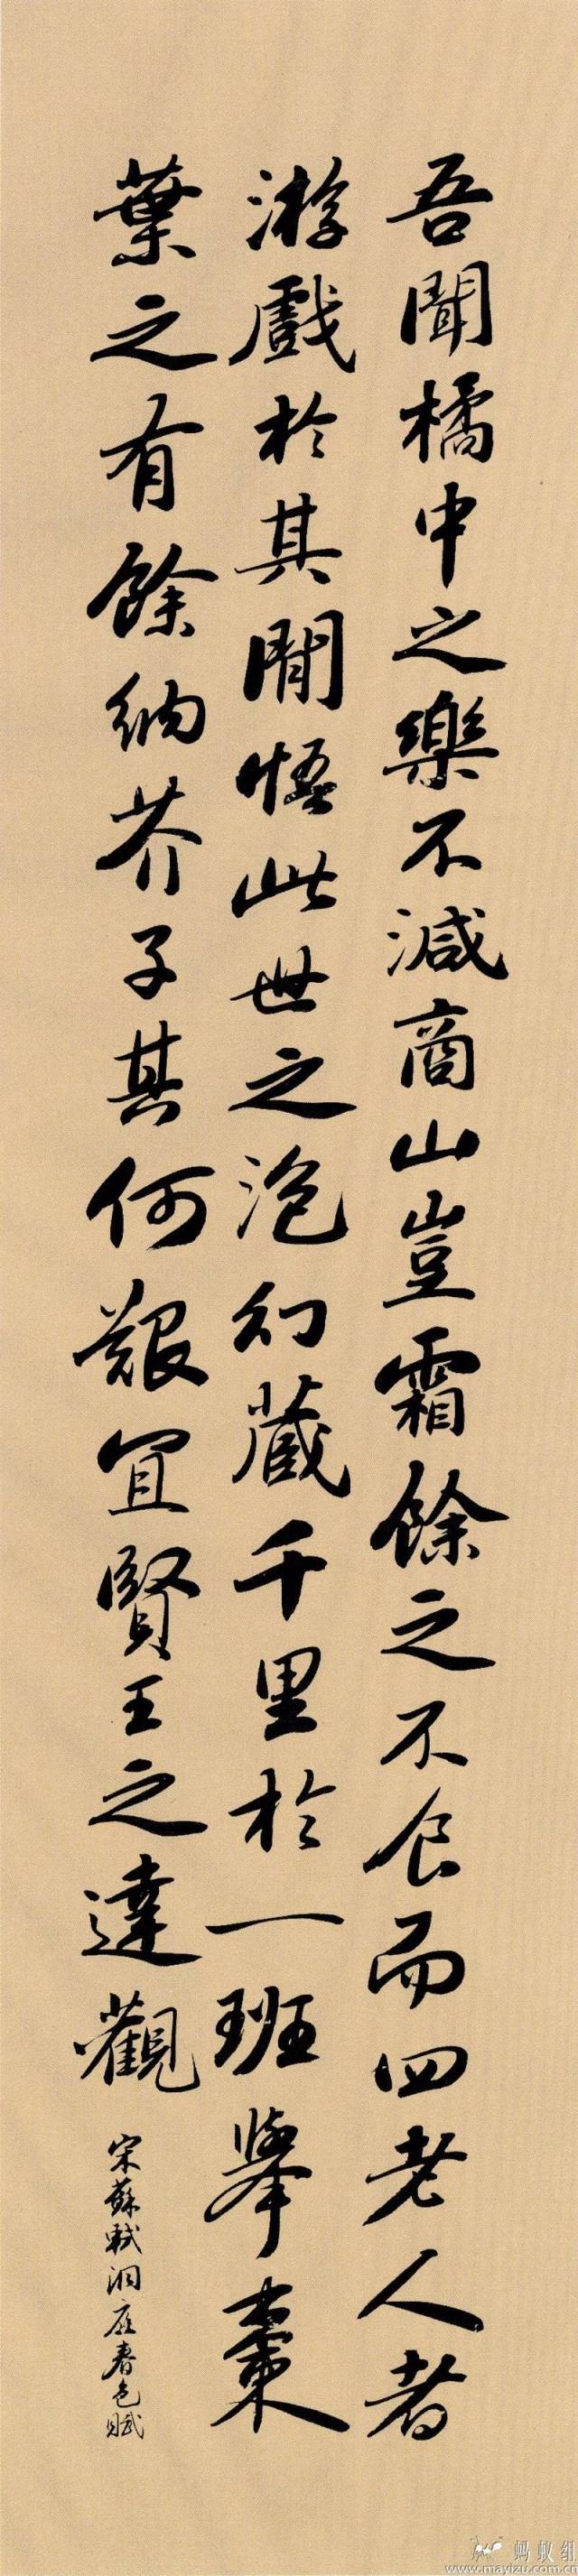 吾聞橘中之樂不減商山豈霜餘之不食而四老人者
游戲於其間悟此世之泡幻藏千里於一班舉棗
葉之有餘納芥子其何艱宜賢王之達觀
宋蘇軾洞庭春色賦
蚂蚁组
www.mayizu.com.cn